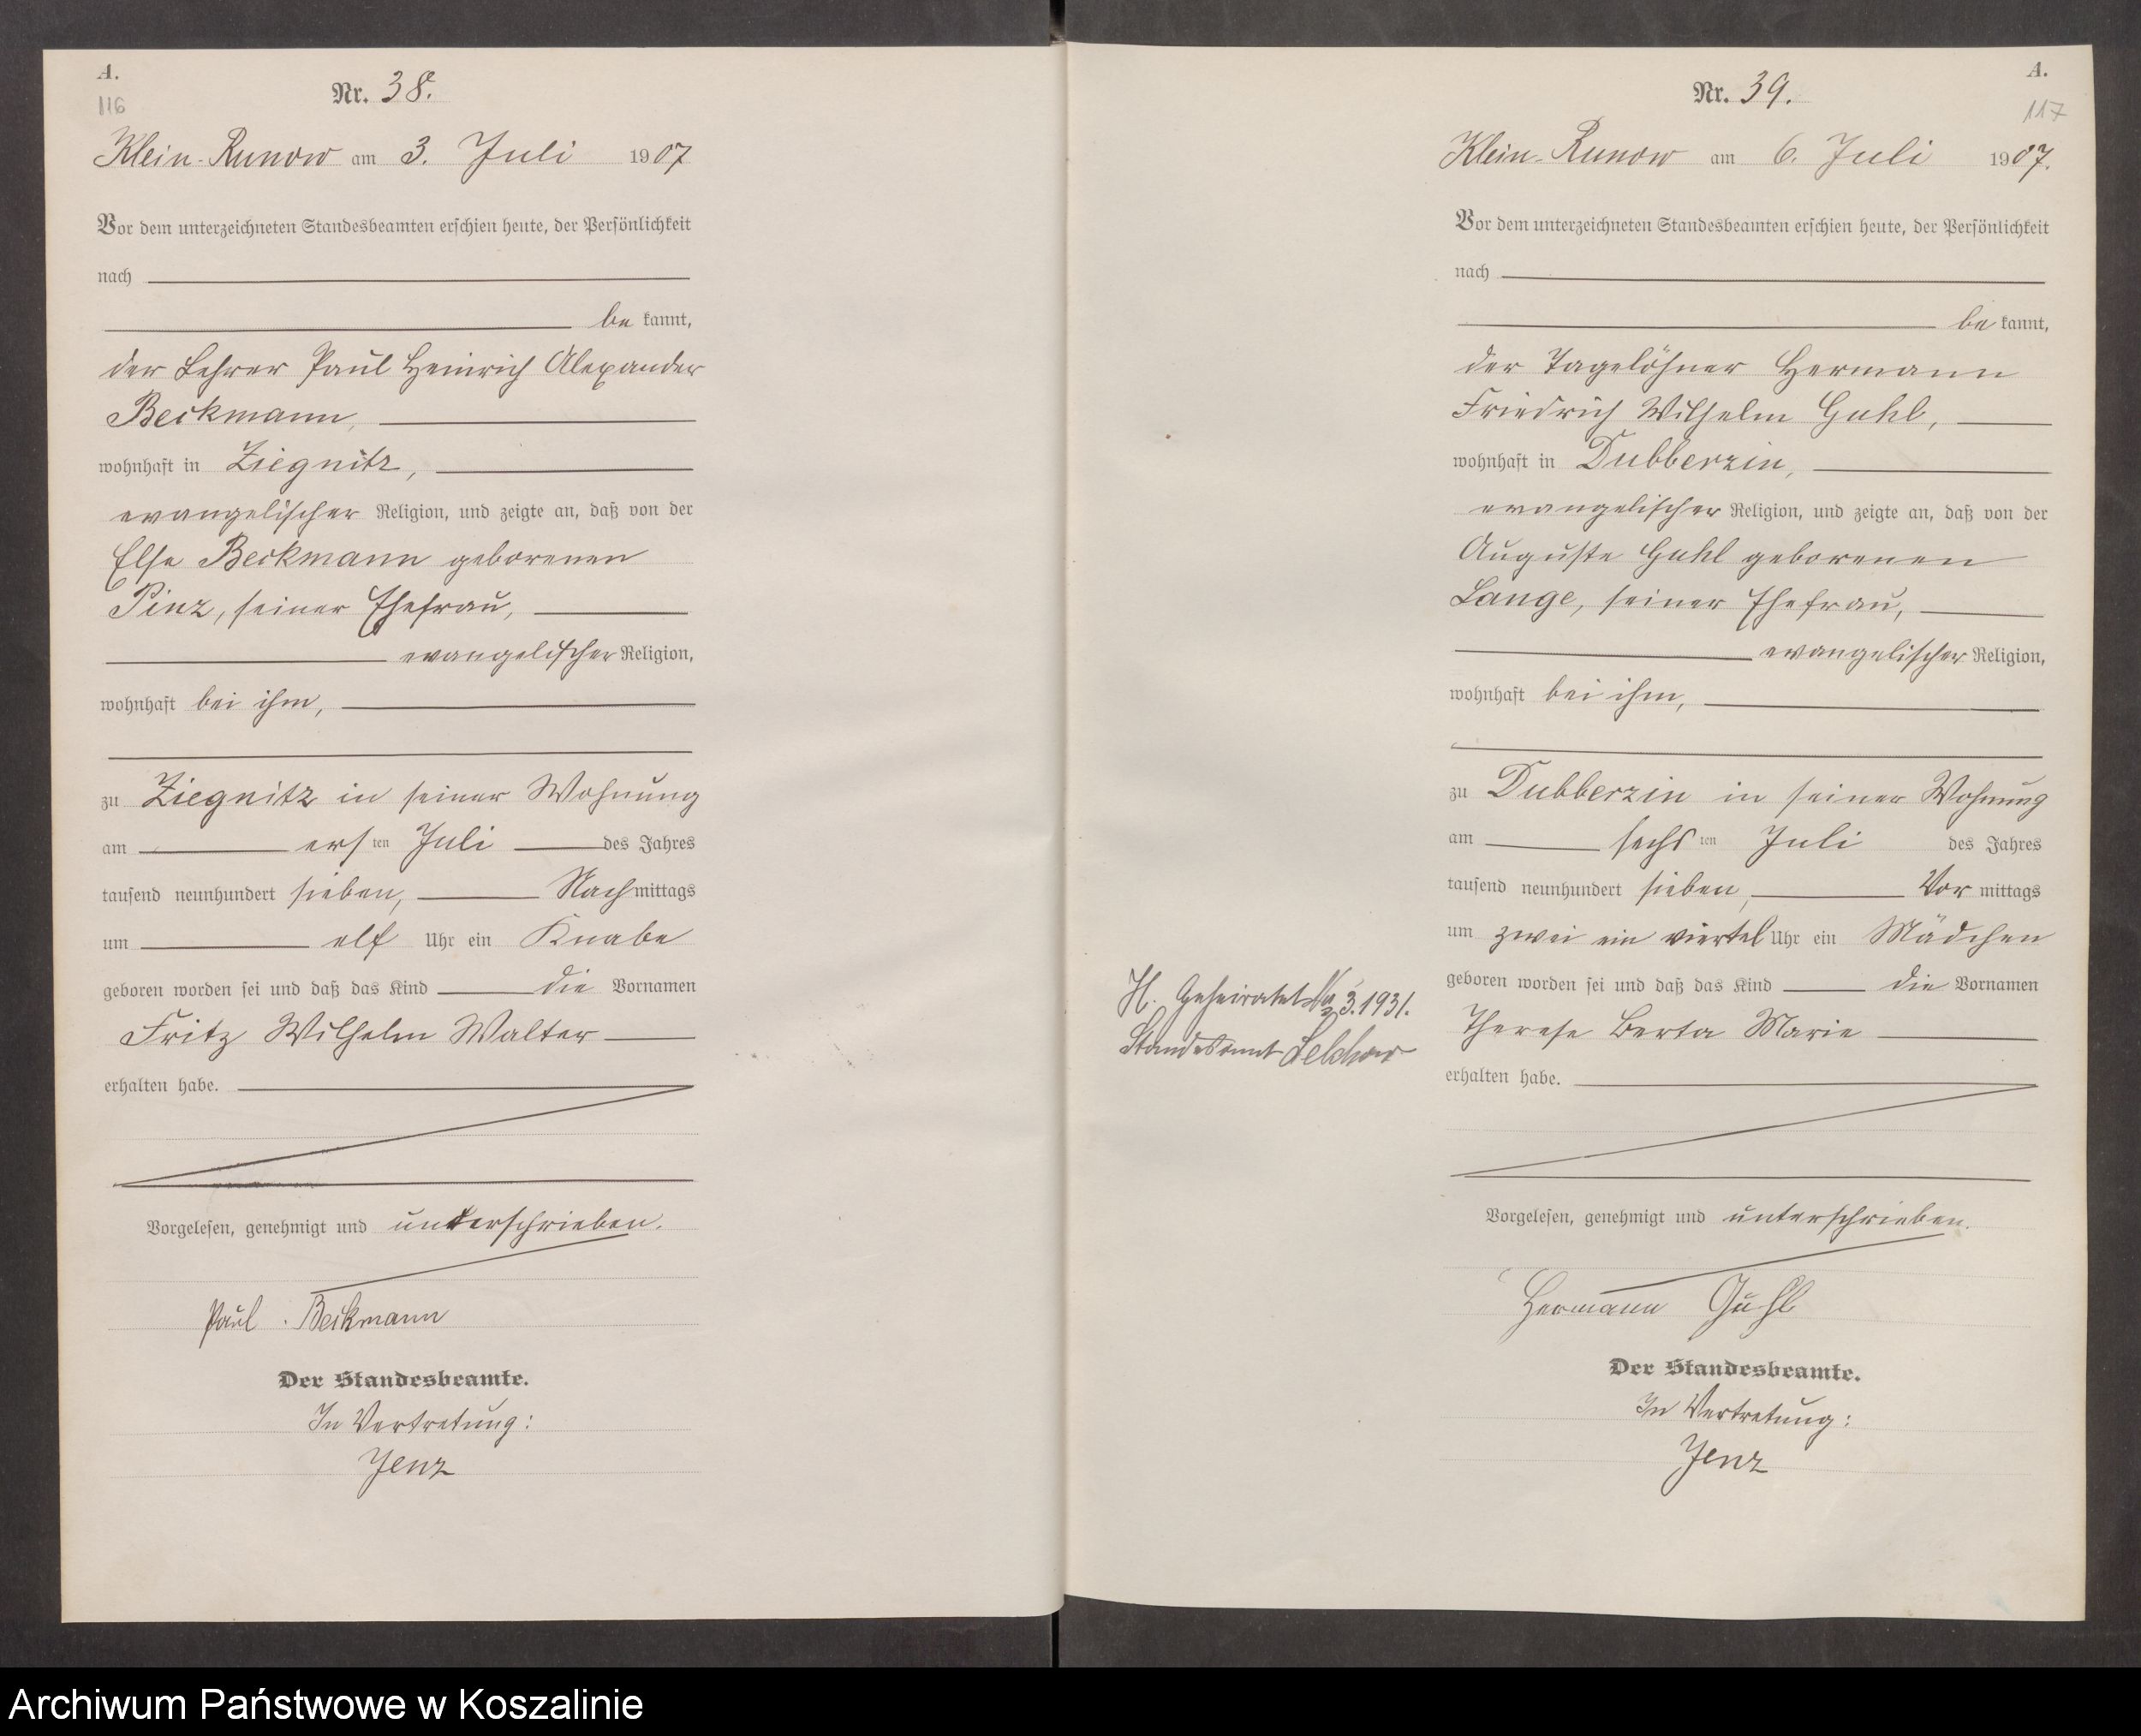 A.
116
Nr. 38.
Klein-Runow am 3. Juli 1907
Vor dem unterzeichneten Standesbeamten erschien heute, der Persönlichkeit
nach
be kannt,
der Lehrer Paul Heinrich Alexander
Beckmann,
wohnhaft in Ziegnitz,
evangelischer Religion, und zeigte an, daß von der
Else Beckmann geborenen
Pinz, seiner Ehefrau,
evangelischer Religion,
wohnhaft bei ihm,
zu Ziegnitz in seiner Wohnung
am ersten Juli des Jahres
tausend neunhundert sieben, Nachmittags
um elf Uhr ein Knabe
geboren worden sei und daß das Kind die Vornamen
Fritz Wilhelm Walter
erhalten habe.
Vorgelesen, genehmigt und unterschrieben.
Paul Beckmann
Der Standesbeamte.
In Vertretung:
Jenz
A.
117
Nr. 39.
Klein-Runow am 6. Juli 1907.
Vor dem unterzeichneten Standesbeamten erschien heute, der Persönlichkeit
nach
be kannt,
der Tagelöhner Hermann
Friedrich Wilhelm Guhl,
wohnhaft in Dubberzin,
evangelischer Religion, und zeigte an, daß von der
Auguste Guhl geborenen
Lange, seiner Ehefrau,
evangelischer Religion,
wohnhaft bei ihm,
zu Dubberzin in seiner Wohnung
am sechsten Juli des Jahres
tausend neunhundert sieben, Vormittags
um zwei ein viertel Uhr ein Mädchen
geboren worden sei und daß das Kind die Vornamen
Therese Berta Marie
erhalten habe.
H. Geheiratet 3.1931.
Standesamt
Vorgelesen, genehmigt und unterschrieben.
Hermann Guhl
Der Standesbeamte.
In Vertretung:
Jenz
Archiwum Państwowe w Koszalinie